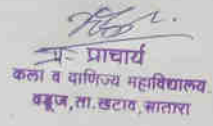 प्र- प्राचार्य
कला व वाणिज्य महाविद्यालय
वडूज, ता. खटाव, सातारा